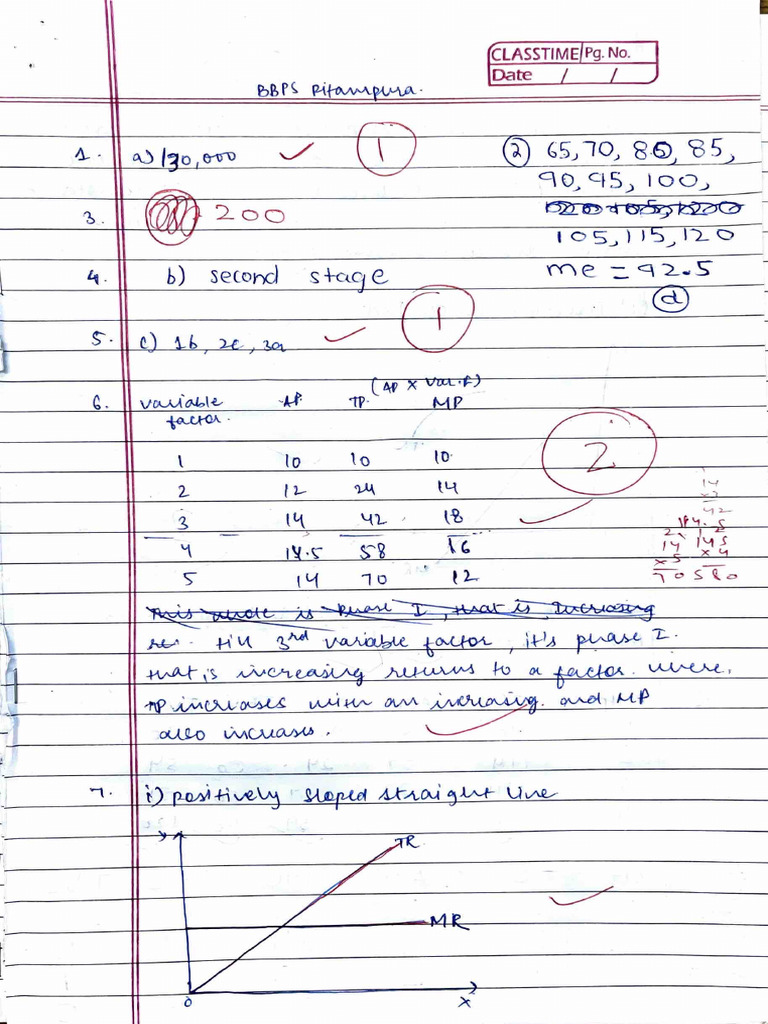 CLASSTIME/Pg. No.
Date / /
BBPS Pitampura.
1. a) 130,000 1
3. 200
4. b) second stage
② 65, 70, 80, 85,
90, 95, 100,
105, 115, 120
me = 92.5
ⓓ
5. c) 1b, 2c, 3a 1
(AP x Var.F)
6. variable AP. TP. MP
factor.
1 10 10 10
2 12 24 14
3 14 42 18
4 14.5 58 16
5 14 70 12
2
14
x3
42
14 14.5
x5 x4
70 580
This whole is Phase I, that is, Increasing
re. till 3rd variable factor, it's phase I.
that is increasing returns to a factor. where,
TP increases with an increasing. and MP
also increases.
7. i) positively sloped straight line
y
TR
MR
0 x